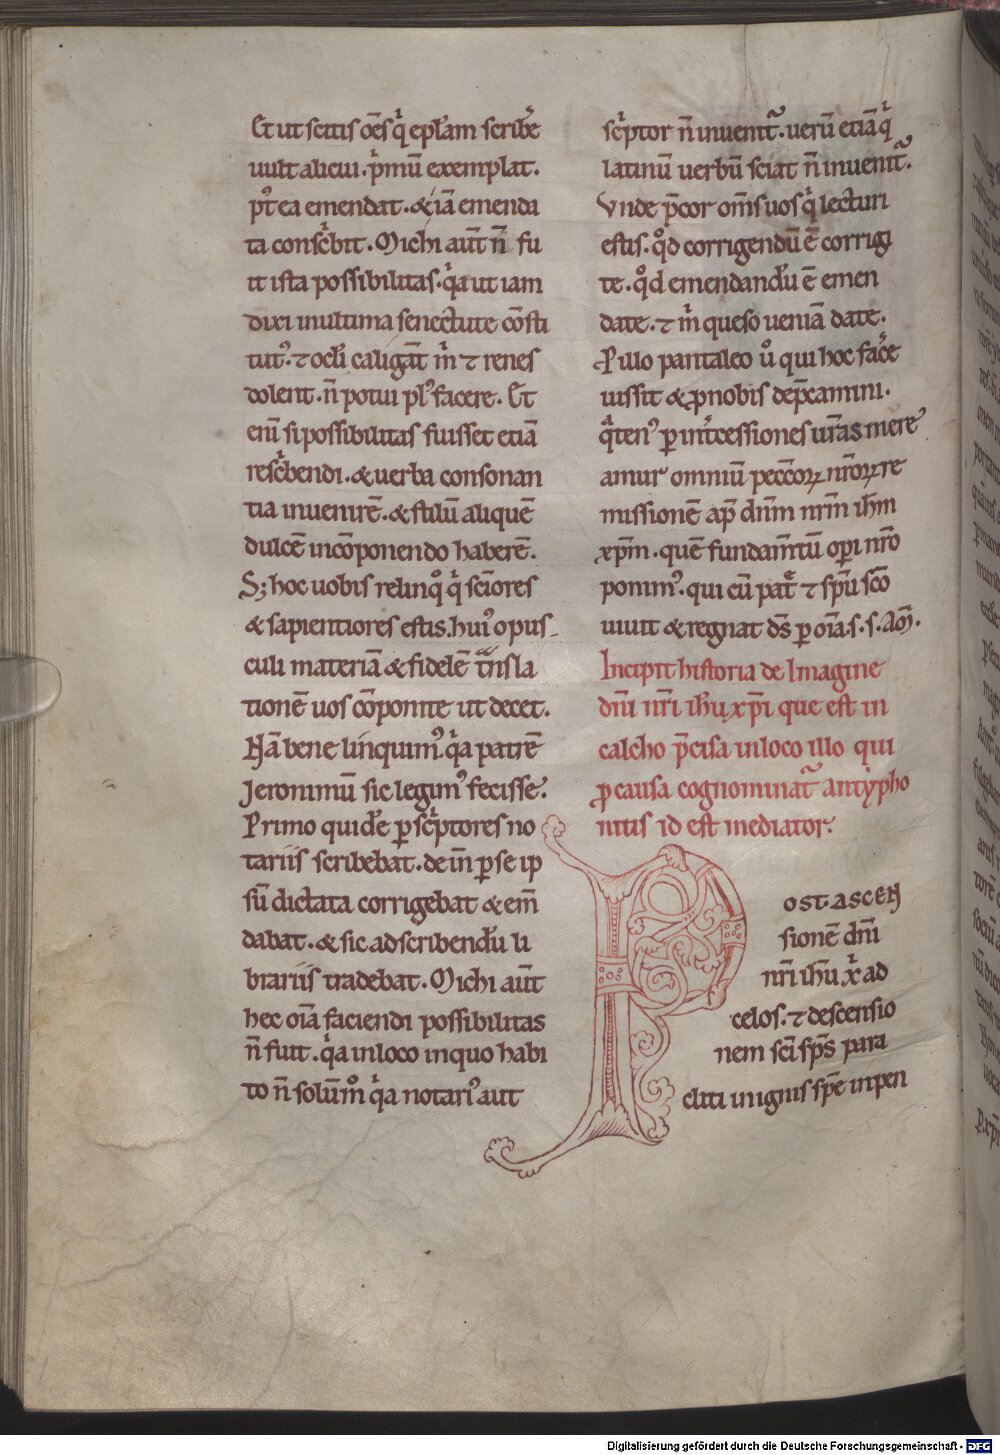 Et ut scitis oēs q̇ ep̄lam scribe᷑
uult alicui. ṗmū exemplat.
pt᷒ea emendat. & iā emenda
ta consc̄bit. Michi aūt n̄ fu
it ista possibilitas. q̇a ut iam
dixi in ultima senectute cōsti
tut᷒. ⁊ ocl̄i caligāt m̄ ⁊ renes
dolent. n̄ potui pl᷒ facere. Et
eni̅ si possibilitas fuisset etiā
resc̄bendi. & uerba consonan
tia inuenirē. & stilū aliquē
dulcē in cōponendo haberē.
S; hoc uobis relinq̊ q̇ sciōres
& sapientiores estis. hui᷒ opus
culi materiā & fidelē tnsla
tionē uos cōponite ut decet.
Nā bene linquim᷒. q̇a patrē
Jeronimū sic legim᷒ fecisse.
Primo quidē ꝑ sc̄ptores no
tariis scribebat. dein̄ ꝑ se ip
sū dictata corrigebat & em̄
dabat. & sic ad scribendū li
brariis tradebat. Michi aūt
hec oīa faciendi possibilitas
n̄ fuit. q̇a in loco in quo habi
to n̄ solūm̊ q̇a notari᷒ aut
sc̄ptor n̄ inuenit᷑. uerū etiā q̇
latinū uerbū sciat n̄ inuenit᷑.
Vnde p̄cor om̄s uos q̇ lecturi
estis. q̊d corrigendū ē corrigi
te. q̊d emendandū ē emen
date. ⁊ m̄ queso ueniā date.
P illo pantaleo ů qui hoc face᷑
iussit & ꝓ nobis dep̄camini.
q̄ten᷒ ꝑ int̄cessiones ur̄as mere
amur omniū pecc̄oꝝ nr̄oꝝ re
missionē ap̄ dnm̄ nrm̄ ih̄m
xp̄m. quē fundam̄tū op̄i nr̄o
ponim᷒. qui cū pat̄ ⁊ sp̄u sc̄o
uiuit & regnat ds̄ ꝑ oīa. s. s. Am̄.
Incipit historia de Imagine
dn̄i nr̄i ih̄u xp̄i que est in
calcho p̄cisa in loco illo qui
ꝓ causa cognominat᷑ antẏpho
nitis id est mediator.
Post ascen
sionē dn̄i
nr̄i ih̄u x̄i ad
celos. ⁊ descensio
nem sc̄i sp̄s para
cliti in ignis sp̄e in pen
Digitalisierung gefördert durch die Deutsche Forschungsgemeinschaft - DFG